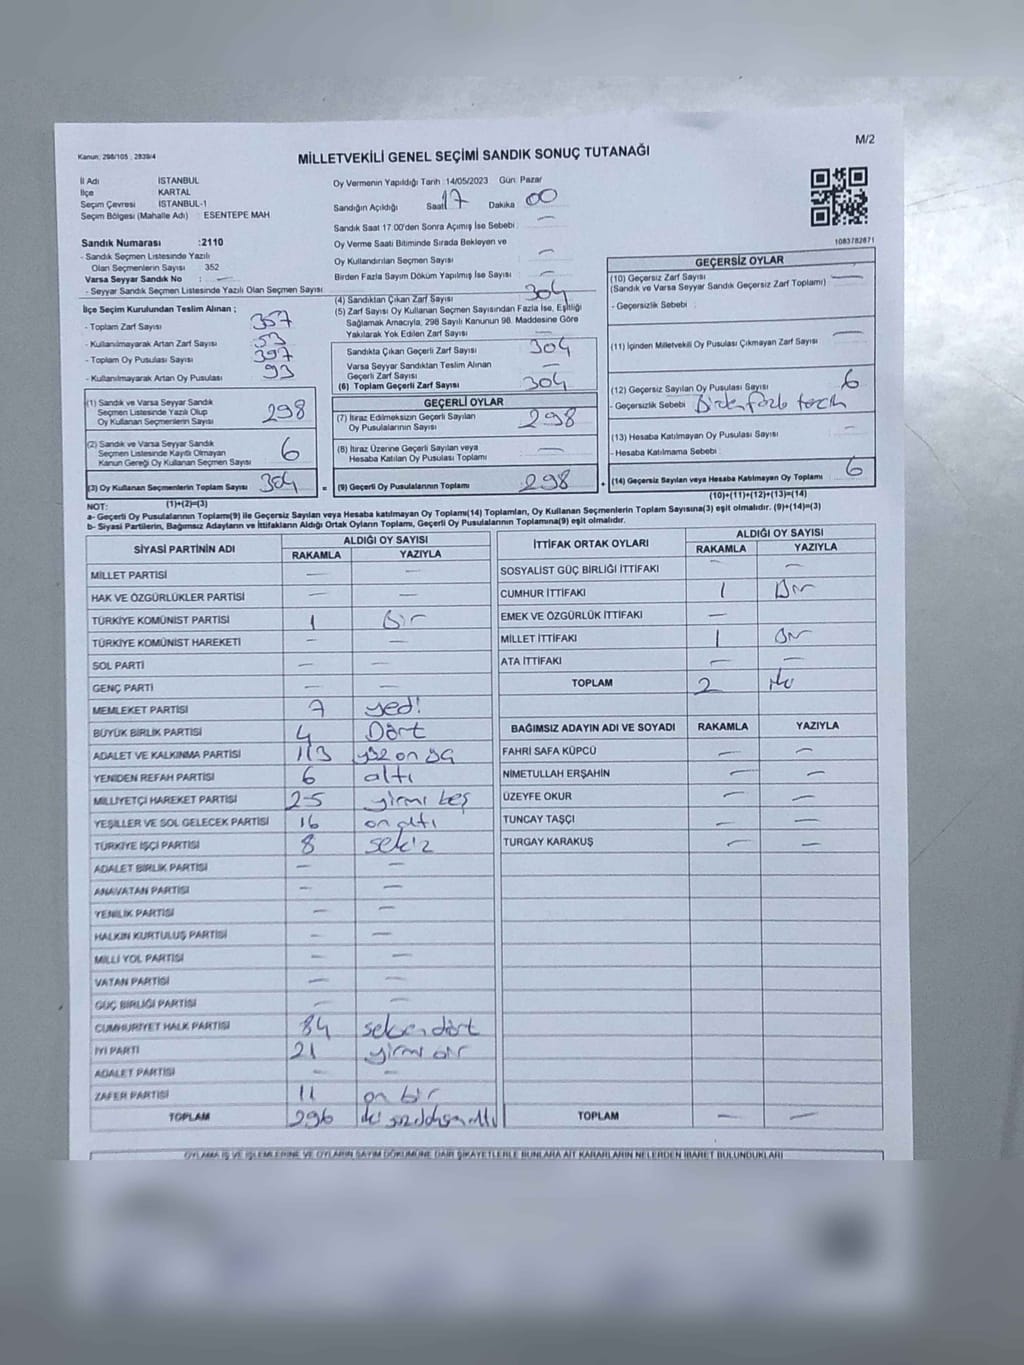 M/2
Kanun: 298/105 , 2839/4
MİLLETVEKİLİ GENEL SEÇİMİ SANDIK SONUÇ TUTANAĞI
İl Adı İSTANBUL
İlçe KARTAL
Seçim Çevresi İSTANBUL-1
Seçim Bölgesi (Mahalle Adı) : ESENTEPE MAH
Sandık Numarası :2110
- Sandık Seçmen Listesinde Yazılı
Olan Seçmenlerin Sayısı 352
Varsa Seyyar Sandık No : —
- Seyyar Sandık Seçmen Listesinde Yazılı Olan Seçmen Sayısı
İlçe Seçim Kurulundan Teslim Alınan ;
- Toplam Zarf Sayısı 357
- Kullanılmayarak Artan Zarf Sayısı 53
- Toplam Oy Pusulası Sayısı 397
- Kullanılmayarak Artan Oy Pusulası 93
(1) Sandık ve Varsa Seyyar Sandık
Seçmen Listesinde Yazılı Olup
Oy Kullanan Seçmenlerin Sayısı 298
(2) Sandık ve Varsa Seyyar Sandık
Seçmen Listesinde Kayıtlı Olmayan
Kanun Gereği Oy Kullanan Seçmen Sayısı 6
(3) Oy Kullanan Seçmenlerin Toplam Sayısı 304 =
(1)+(2)=(3)
Oy Vermenin Yapıldığı Tarih :14/05/2023 Gün: Pazar
Sandığın Açıldığı Saat 17 Dakika 00
Sandık Saat 17:00'den Sonra Açımış İse Sebebi : —
Oy Verme Saati Bitiminde Sırada Bekleyen ve
Oy Kullandırılan Seçmen Sayısı —
Birden Fazla Sayım Döküm Yapılmış İse Sayısı : —
(4) Sandıktan Çıkan Zarf Sayısı 304
(5) Zarf Sayısı Oy Kullanan Seçmen Sayısından Fazla İse, Eşitliği
Sağlamak Amacıyla, 298 Sayılı Kanunun 98. Maddesine Göre
Yakılarak Yok Edilen Zarf Sayısı —
Sandıkta Çıkan Geçerli Zarf Sayısı 304
Varsa Seyyar Sandıktan Teslim Alınan
Geçerli Zarf Sayısı —
(6) Toplam Geçerli Zarf Sayısı 304
GEÇERLİ OYLAR
(7) İtiraz Edilmeksizin Geçerli Sayılan
Oy Pusulalarının Sayısı 298
(8) İtiraz Üzerine Geçerli Sayılan veya
Hesaba Katılan Oy Pusulası Toplamı —
(9) Geçerli Oy Pusulalarının Toplamı 298 +
1083782871
GEÇERSİZ OYLAR
(10) Geçersiz Zarf Sayısı
(Sandık ve Varsa Seyyar Sandık Geçersiz Zarf Toplamı) —
- Geçersizlik Sebebi :
(11) İçinden Milletvekili Oy Pusulası Çıkmayan Zarf Sayısı —
(12) Geçersiz Sayılan Oy Pusulası Sayısı 6
- Geçersizlik Sebebi Birden fazla tercih
(13) Hesaba Katılmayan Oy Pusulası Sayısı —
- Hesaba Katılmama Sebebi :
(14) Geçersiz Sayılan veya Hesaba Katılmayan Oy Toplamı 6
(10)+(11)+(12)+(13)=(14)
NOT:
a- Geçerli Oy Pusulalarının Toplamı(9) ile Geçersiz Sayılan veya Hesaba katılmayan Oy Toplamı(14) Toplamları, Oy Kullanan Seçmenlerin Toplam Sayısına(3) eşit olmalıdır. (9)+(14)=(3)
b- Siyasi Partilerin, Bağımsız Adayların ve İttifakların Aldığı Ortak Oyların Toplamı, Geçerli Oy Pusulalarının Toplamına(9) eşit olmalıdır.
SİYASİ PARTİNİN ADI ALDIĞI OY SAYISI
RAKAMLA YAZIYLA
MİLLET PARTİSİ — —
HAK VE ÖZGÜRLÜKLER PARTİSİ — —
TÜRKİYE KOMÜNİST PARTİSİ 1 Bir
TÜRKİYE KOMÜNİST HAREKETİ — —
SOL PARTİ — —
GENÇ PARTİ — —
MEMLEKET PARTİSİ 7 yedi
BÜYÜK BİRLİK PARTİSİ 4 Dört
ADALET VE KALKINMA PARTİSİ 113 yüz on üç
YENİDEN REFAH PARTİSİ 6 altı
MİLLİYETÇİ HAREKET PARTİSİ 25 yirmi beş
YEŞİLLER VE SOL GELECEK PARTİSİ 16 on altı
TÜRKİYE İŞÇİ PARTİSİ 8 sekiz
ADALET BİRLİK PARTİSİ — —
ANAVATAN PARTİSİ — —
YENİLİK PARTİSİ — —
HALKIN KURTULUŞ PARTİSİ — —
MİLLİ YOL PARTİSİ — —
VATAN PARTİSİ — —
GÜÇ BİRLİĞİ PARTİSİ — —
CUMHURİYET HALK PARTİSİ 84 seksen dört
İYİ PARTİ 21 yirmi bir
ADALET PARTİSİ — —
ZAFER PARTİSİ 11 on bir
TOPLAM 296
İTTİFAK ORTAK OYLARI ALDIĞI OY SAYISI
RAKAMLA YAZIYLA
SOSYALİST GÜÇ BİRLİĞİ İTTİFAKI — —
CUMHUR İTTİFAKI 1 Bir
EMEK VE ÖZGÜRLÜK İTTİFAKI —
MİLLET İTTİFAKI 1 Bir
ATA İTTİFAKI — —
TOPLAM 2 iki
BAĞIMSIZ ADAYIN ADI VE SOYADI RAKAMLA YAZIYLA
FAHRİ SAFA KÜPCÜ — —
NİMETULLAH ERŞAHİN — —
ÜZEYFE OKUR — —
TUNCAY TAŞÇI — —
TURGAY KARAKUŞ — —
TOPLAM — —
OYLAMA İŞ VE İŞLEMLERİNE VE OYLARIN SAYIM DÖKÜMÜNE DAİR ŞİKAYETLERLE BUNLARA AİT KARARLARIN NELERDEN İBARET BULUNDUKLARI